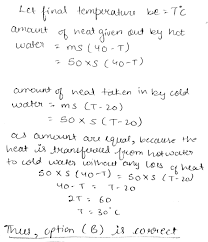 Let final temperature be = T°C
amount of heat given out by hot
water = ms (40-T)
= 50 x S (40-T)
amount of heat taken in by cold
water = ms (T-20)
= 50 x S (T-20)
as amount are equal, because the
heat is transferred from hot water
to cold water without any loss of heat
50 x S (40-T) = 50 x S (T-20)
40-T = T-20
2T = 60
T = 30°C
Thus, option (B) is correct